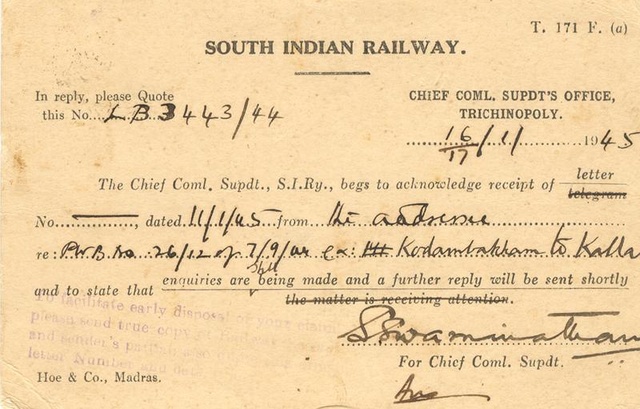 T. 171 F. (a)
SOUTH INDIAN RAILWAY.
In reply, please Quote
this No....LB3443/44
CHIEF COML. SUPDT'S OFFICE,
TRICHINOPOLY.
16/17/1/ 1945
The Chief Coml. Supdt., S.I.Ry., begs to acknowledge receipt of letter
telegram
No ———, dated 11/1/45 from the addressee
re: P.W.B. No. 26/12 of 7/9/44 ex: Kodambakkam to Kalla
and to state that enquiries are still being made and a further reply will be sent shortly
the matter is receiving attention.
To facilitate early disposal of your claim
please send true copy
and sender's
letter Number and
S Swaminathan
For Chief Coml. Supdt.
Hoe & Co., Madras.